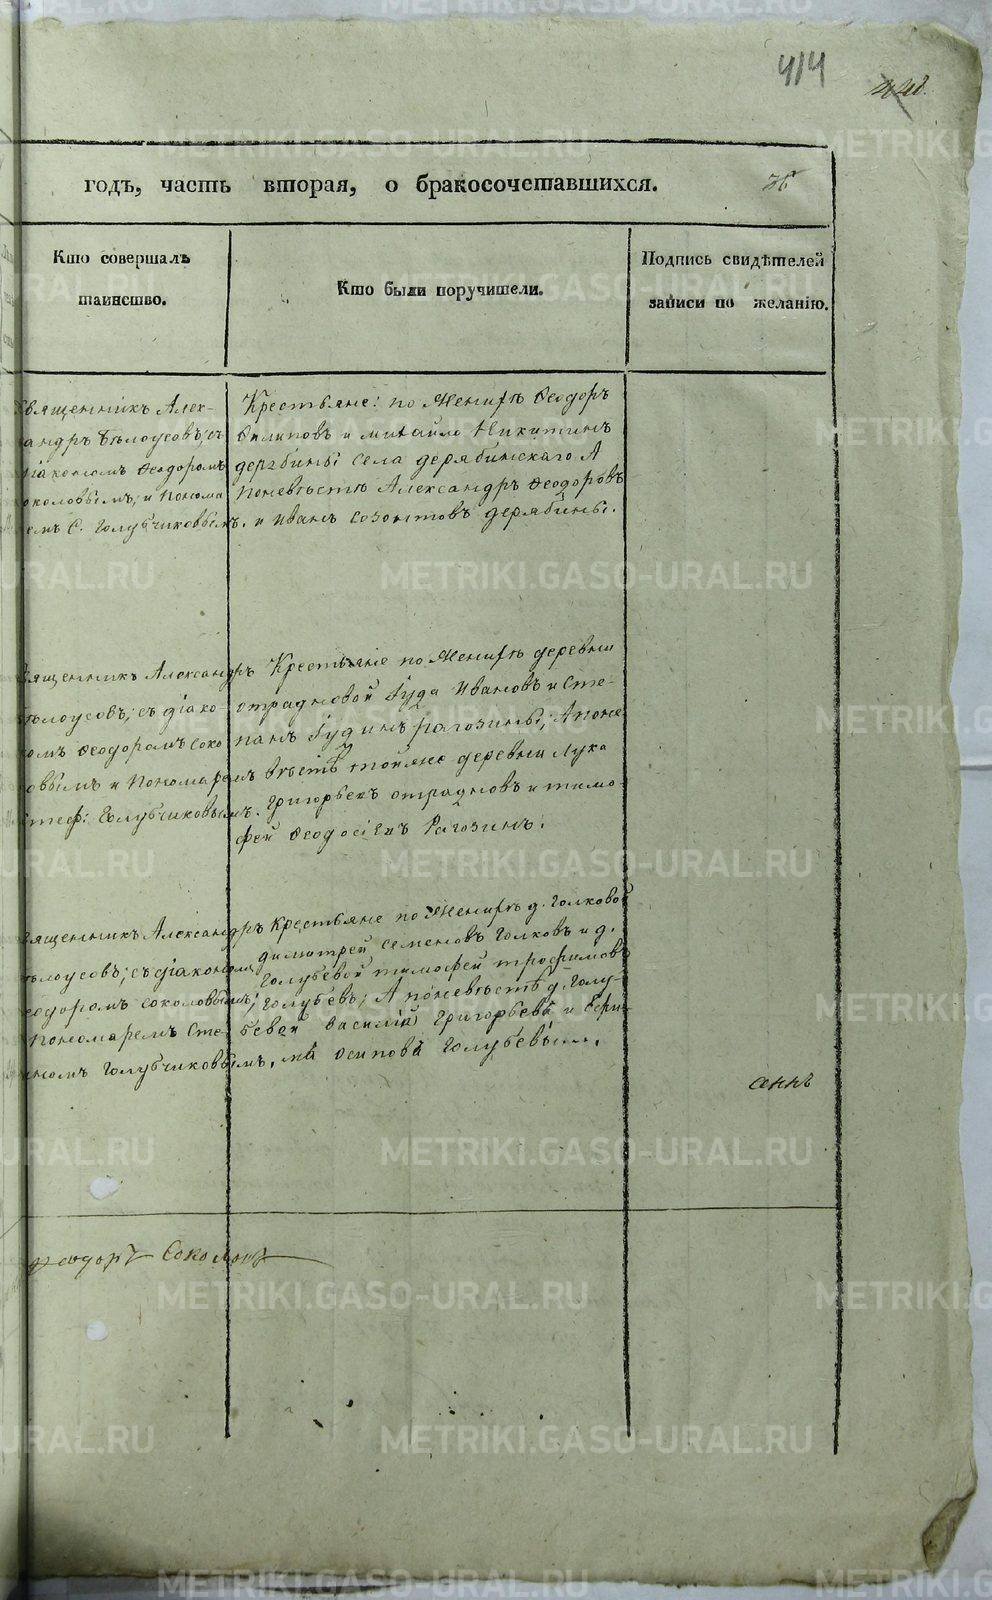 414
годъ, часть вторая, о бракосочетавшихся.
36
Кто совершалъ
таинство.
Кто были поручители.
Подпись свидѣтелей
записи по желанію.
вященникъ Алек-
андръ Бѣлоусовъ, съ
діакономъ Ѳеодоромъ
околовымъ, и понома
емъ С. Голубчиковымъ.
Крестьяне: по женихѣ Ѳеодоръ
Филиповъ и михайло Никитинъ
дерябины села дерябинскаго А
поневѣстѣ Александръ Ѳеодоровъ
и Иванъ Созонтовъ дерябины.
вященникъ Александръ
ѣлоусовъ; съ діако-
омъ Ѳеодоромъ Соко
овымъ и пономаремъ
Стеф: Голубчиковымъ.
Крестьяне по женихѣ деревни
отрадновой Іуда Ивановъ и Сте-
панъ Іудинъ рагозины; А поне
вѣстѣ тойже деревни Лука
Григорьевъ отрадновъ и тимо-
фей Ѳеодосіевъ Рагозинъ.
вященникъ Александръ
ѣлоусовъ; съ діакономъ
еодоромъ соколовымъ;
пономаремъ Сте
номъ Голубчиковымъ.
Крестьяне по женихѣ д. Голковой
димитрей Семеновъ Голковъ и д.
Голубевой тимофей трофимовъ
Голубевъ; А поневѣстѣ д. Голу-
бевой Василій Григорьевъ и Ефи-
мъ Осиповъ Голубевы.
аннъ
Ѳеодоръ Соколовъ
METRIKI.GASO-URAL.RU